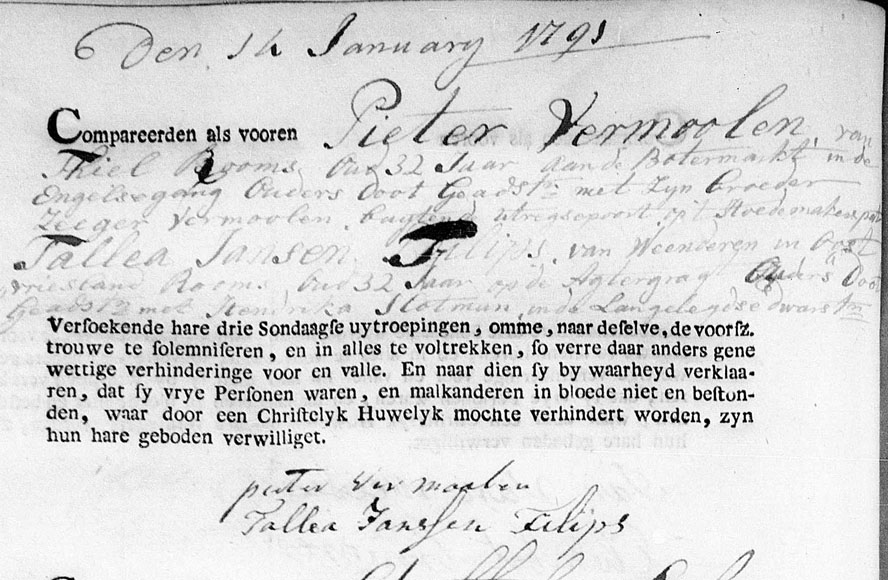 Den 14 January 1791
Compareerden als vooren Pieter Vermoolen, van
Thiel Rooms Oud 32 Jaar aan de Botermarkt in de
Engelsegang Ouders Doot Geadst: met Zyn Broeder
Zeeger Vermoolen buyten de Utregsepoort op't Hoedemakerspat
Tallea Jansen Filips, van Weenderen in Oost
vriesland Rooms Oud 32 Jaar op de Agtergrag Ouders Doot
Geadst: met Hendrika Slotman, in de Langeleydsedwarstr:
Versoekende hare drie Sondaagse uytroepingen, omme, naar deselve, de voorsz.
trouwe te solemniseren, en in alles te voltrekken, so verre daar anders gene
wettige verhinderinge voor en valle. En naar dien sy by waarheyd verklaa-
ren, dat sy vrye Personen waren, en malkanderen in bloede niet en beston-
den, waar door een Christelyk Huwelyk mochte verhindert worden, zyn
hun hare geboden verwilliget.
pieter vermoolen
Tallea Janssen Filips